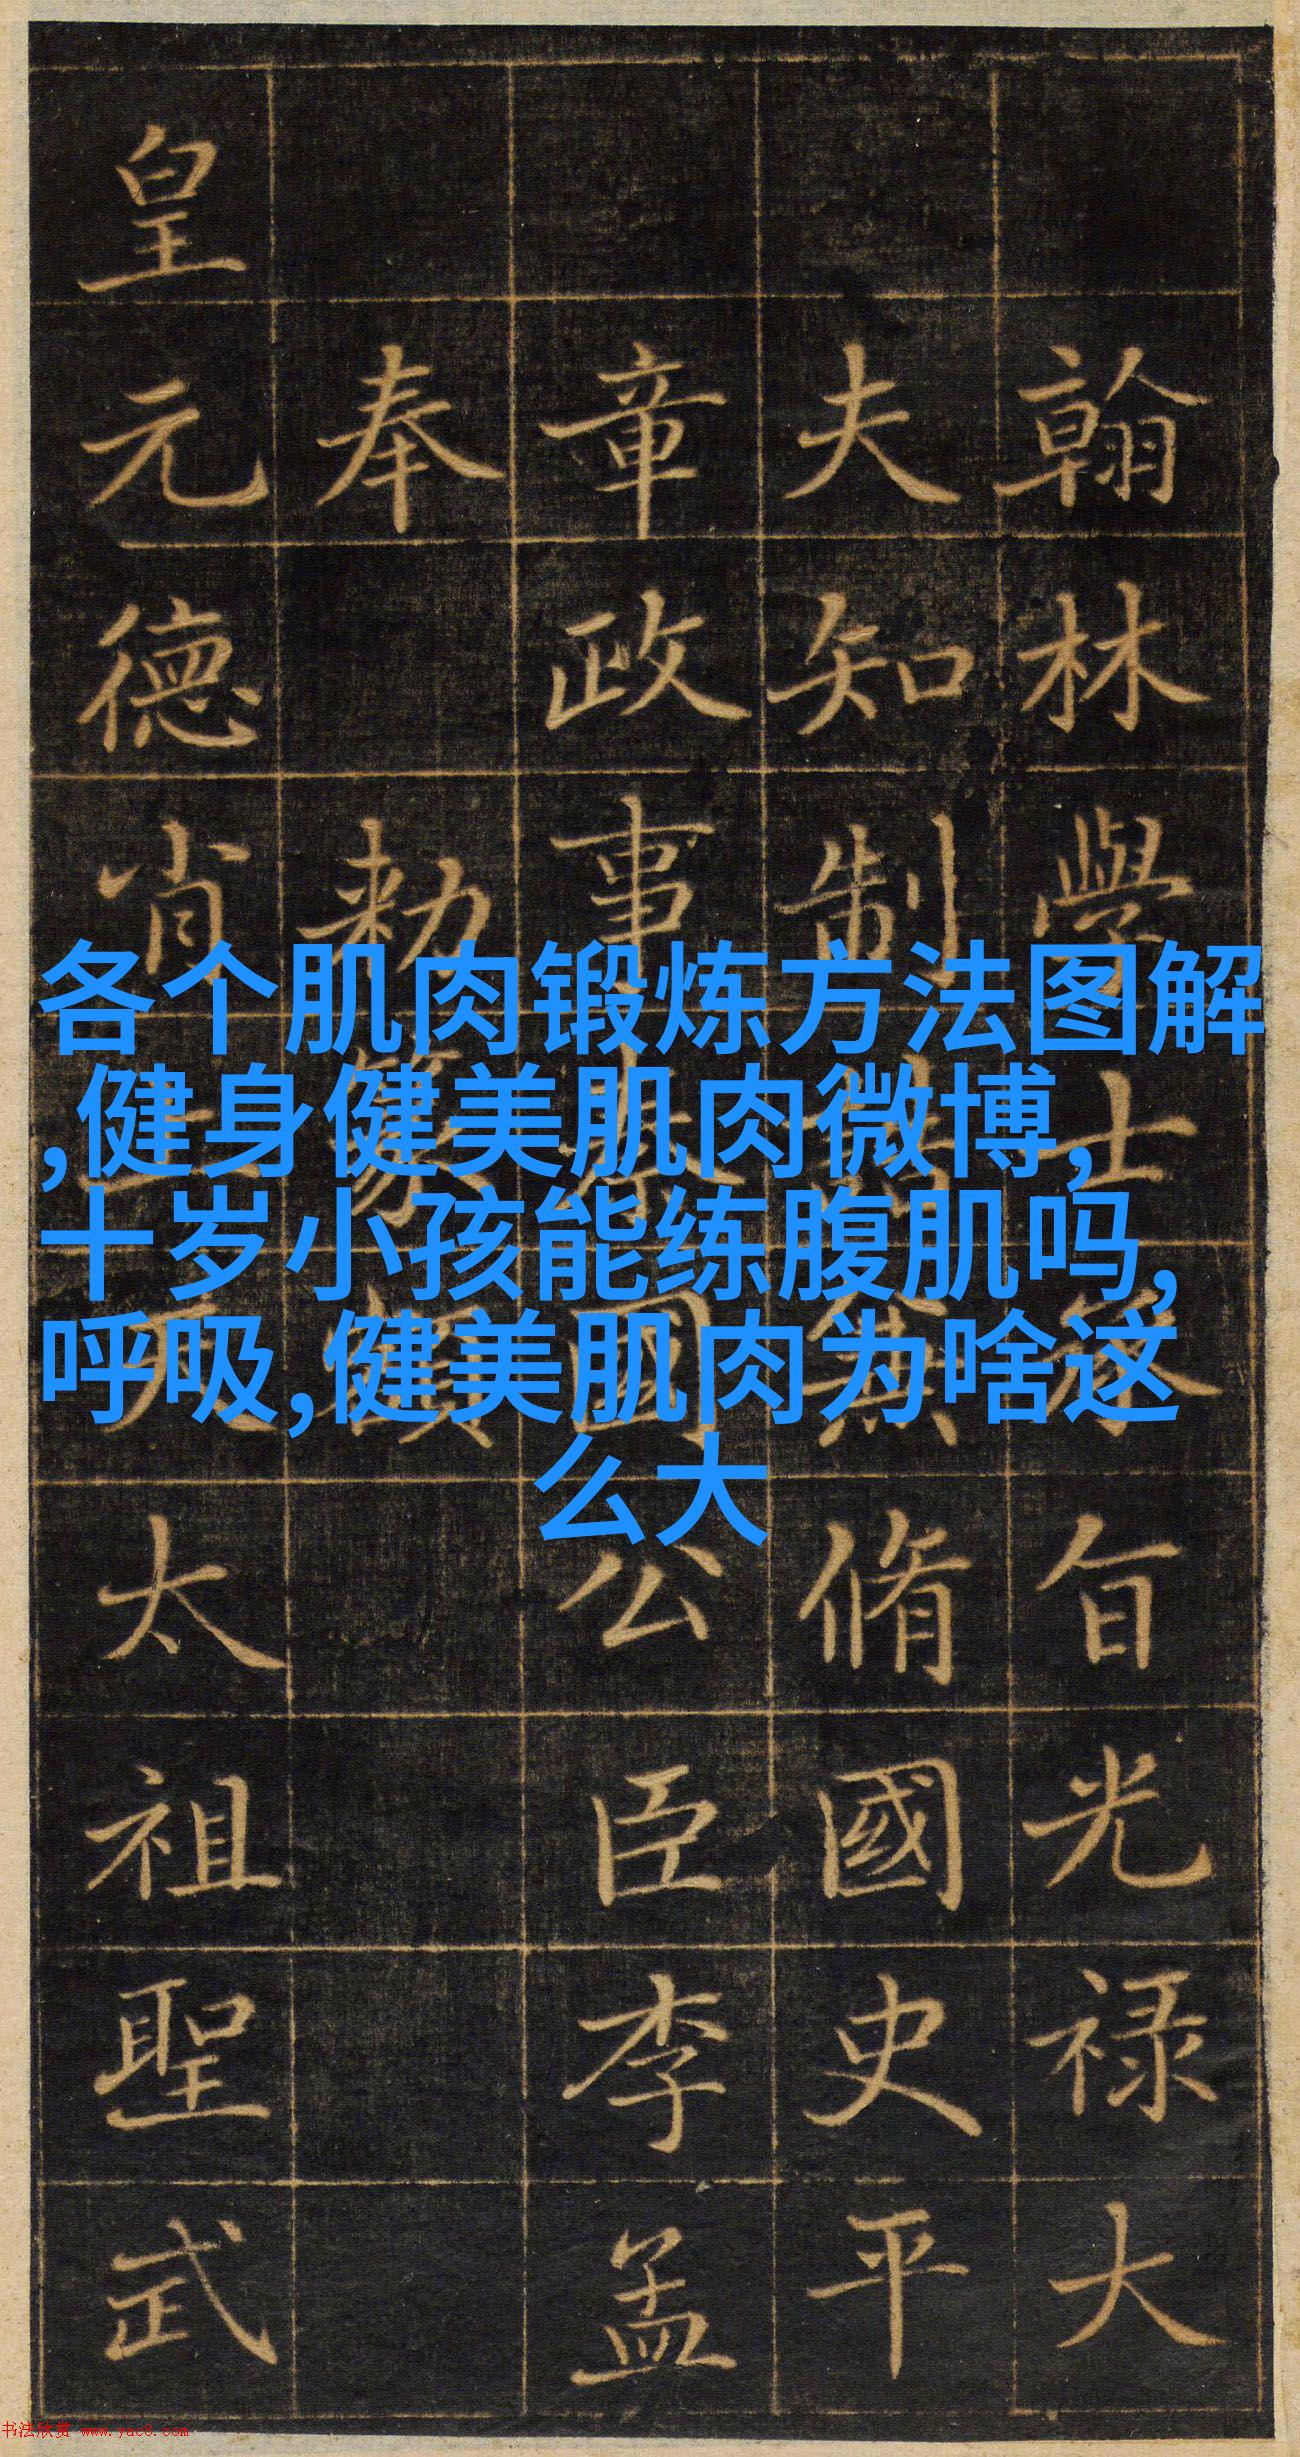 翰林學士承旨光禄大
夫知制誥兼脩國史平
章政事秦國公臣李孟
奉勑篆額
皇元德肖上天太祖聖武
各个肌肉锻炼方法图解
,健身健美肌肉微博,
十岁小孩能练腹肌吗,
呼吸,健美肌肉为啥这
么大
书法欣赏 www.yac8.com